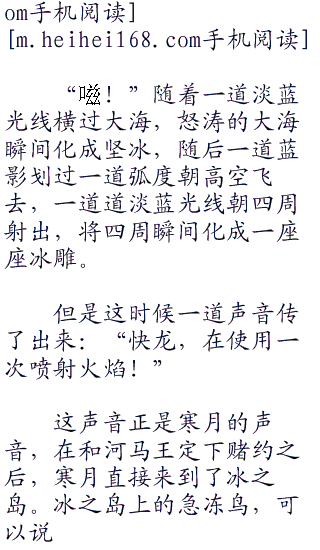 om手机阅读]
[m.heihei168.com手机阅读]
“嗞！”随着一道淡蓝
光线横过大海，怒涛的大海
瞬间化成坚冰，随后一道蓝
影划过一道弧度朝高空飞
去，一道道淡蓝光线朝四周
射出，将四周瞬间化成一座
座冰雕。
但是这时候一道声音传
了出来：“快龙，在使用一
次喷射火焰！”
这声音正是寒月的声
音，在和河马王定下赌约之
后，寒月直接来到了冰之
岛。冰之岛上的急冻鸟，可
以说